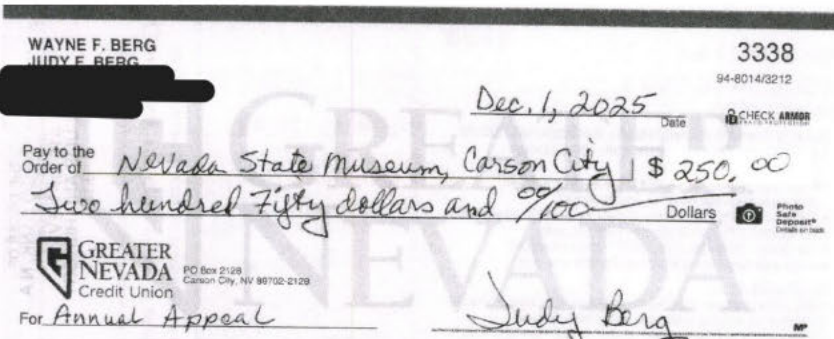 WAYNE F. BERG
JUDY E. BERG
3338
94-8014/3212
Dec. 1, 2025
Date
CHECK ARMOR
Pay to the
Order of Nevada State Museum, Carson City $ 250.00
Two hundred Fifty dollars and 00/100 Dollars
Photo
Safe
Deposit®
Details on back
GREATER
NEVADA
Credit Union
PO Box 2128
Carson City, NV 89702-2128
For Annual Appeal
Judy Berg
MP
GREATER
NEVADA